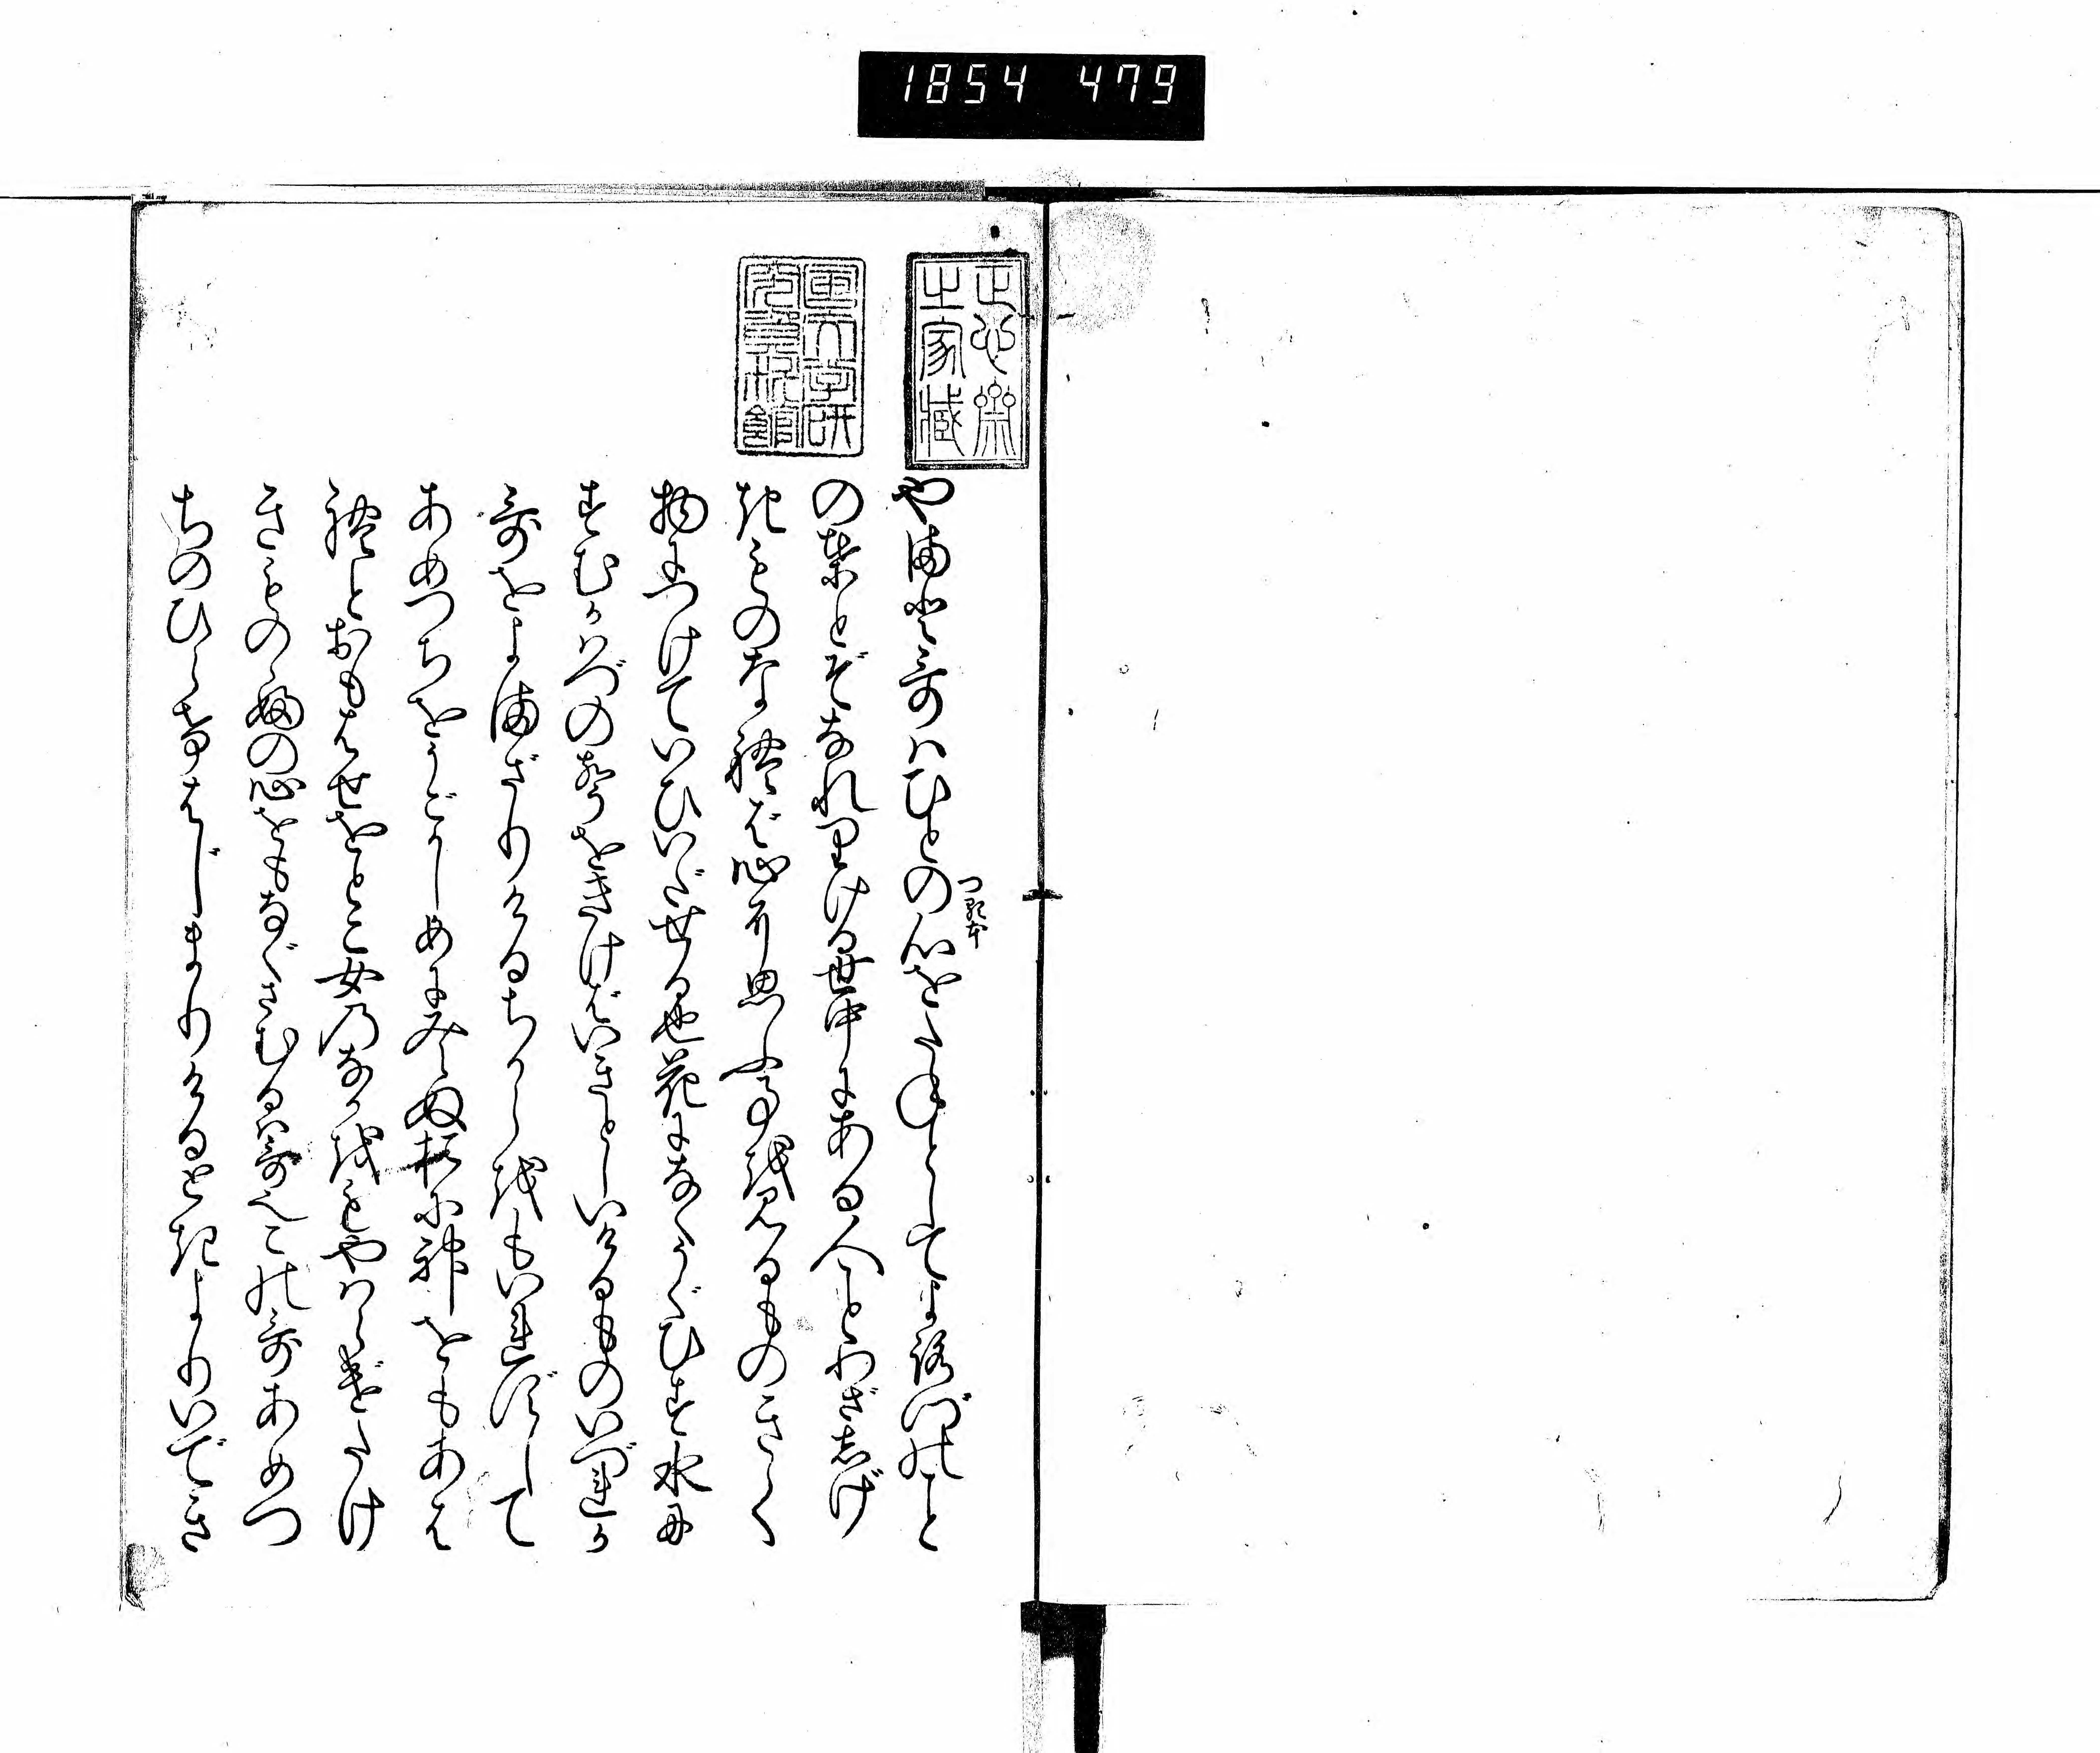 1854 479
正心齋
之家藏
や満と哥ハひとの心をたねとしてよ路づのこと
つ貫本
の葉とぞなれりける世中にあある人ことわざしげ
きものなれば心に思ふ事を見るものきく
物につけていひいだせる也花になくうぐひす水に
すむかハづの聲をきけばいきとしいけるものいづれか
哥をよまざりけるちからをもいれずして
あめつちをうごかしめに みえぬ鬼神をもあは
れとおもはせをとこ女のなかをもやハらげたけ
きものゝふの心をもなぐさむるハ哥なりこの哥あめつ
ちのひらけはじまりけるときよりいでき